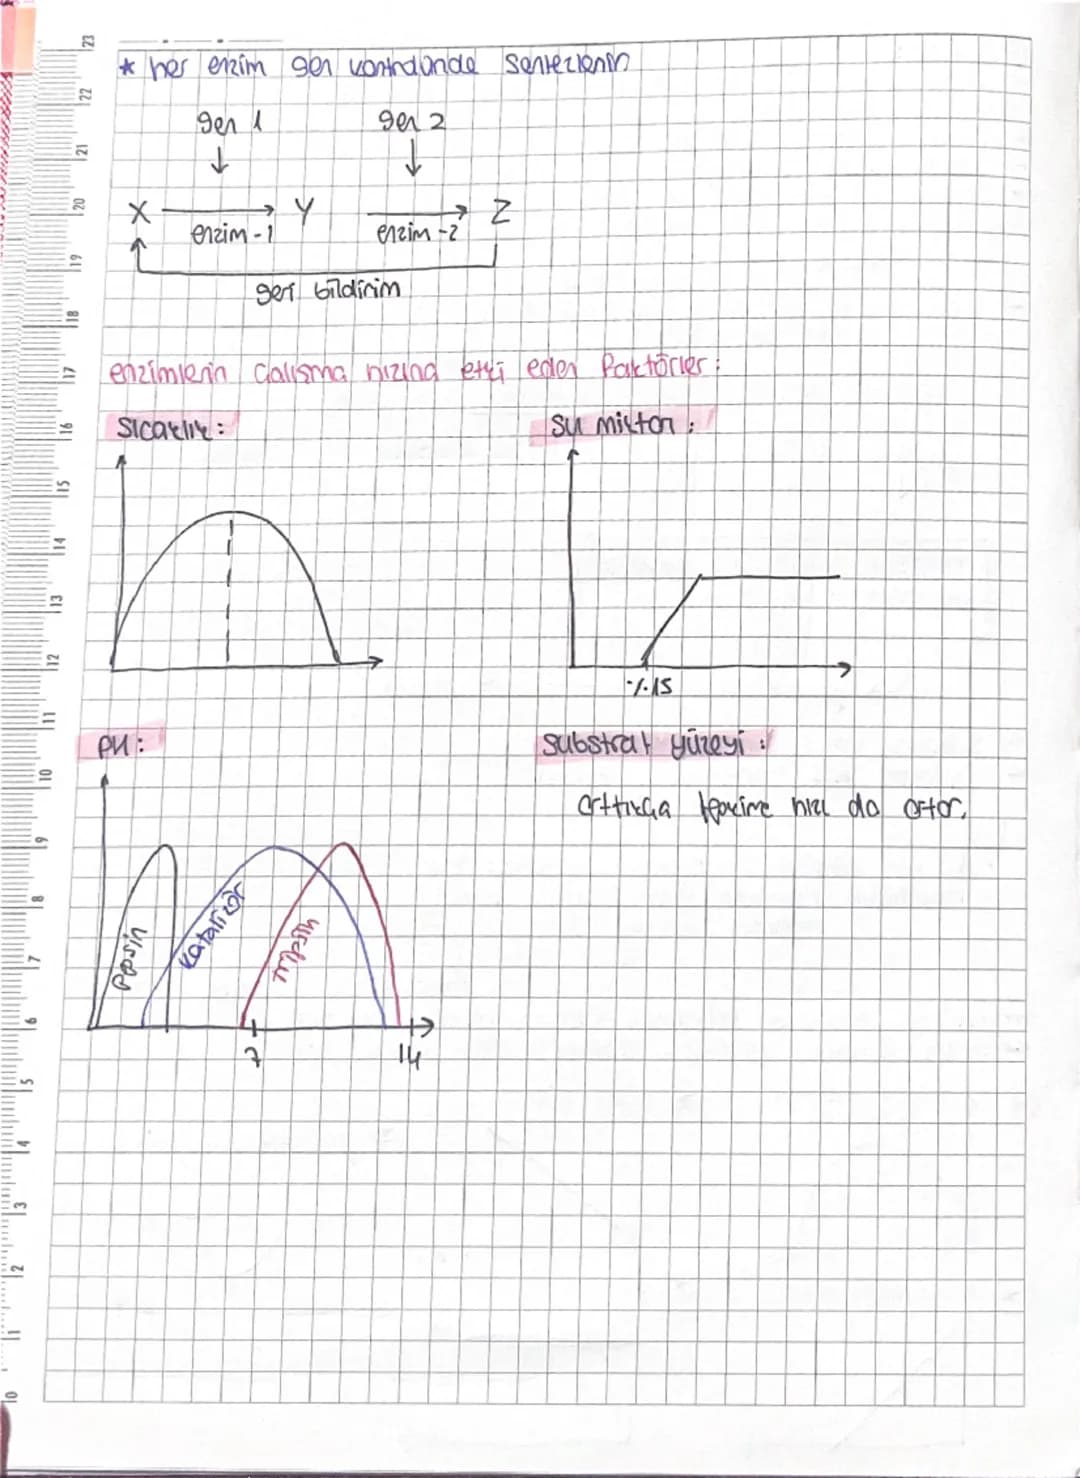 * her enzim gen kontrolünde sentezlenir
gen 1 gen 2
X Y Z
enzim-1 enzim-2
geri bildirim
enzimlerin çalışma hızına etki eden faktörler:
Sıcaklık:
Su miktarı:
%15
PH:
Substrat yüzeyi:
arttıkça tepkime hızı da artar.
Pepsin
Katalizör
tripsin
7 14
23
22
21
20
19
18
17
16
15
14
13
12
11
10
9
8
7
6
5
4
3
2
1
0